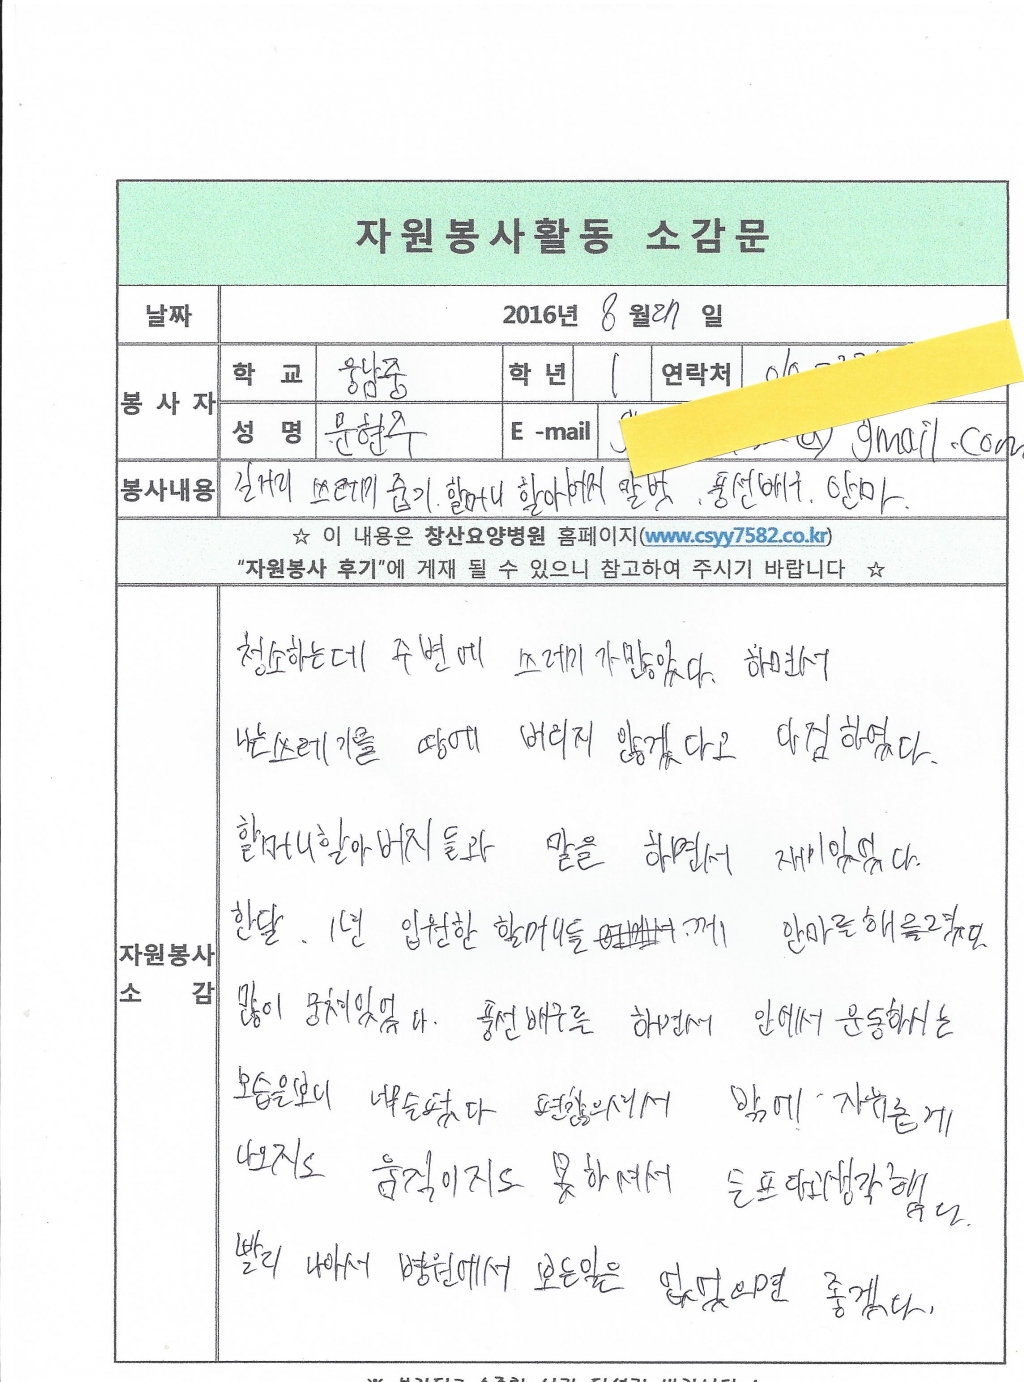 자원봉사활동 소감문
날짜 2016년 8 월 27 일
봉사자 학 교 웅남중 학 년 1 연락처
성 명 문현주 E -mail @ gmail.com
봉사내용 길거리 쓰레기 줍기. 할머니 할아버지 말벗. 풍선배구. 안마.
☆ 이 내용은 창산요양병원 홈페이지(www.csyy7582.co.kr)
“자원봉사 후기”에 게재 될 수 있으니 참고하여 주시기 바랍니다 ☆
자원봉사 소 감
청소하는데 주변에 쓰레기가 많았다. 하면서
나는 쓰레기를 땅에 버리지 않겠다고 다짐하였다.
할머니할아버지들과 말을 하면서 재미있었다.
한달. 1년 입원한 할머니들 께 안마를해
많이 뭉쳐있었다. 풍선배구를 하면서 안에서 운동하시는
모습을보니 밖에
나오지도 움직이지도 못하셔서 생각했다.
빨리 나아서 병원에서 모든일은 없었으면 좋겠다.